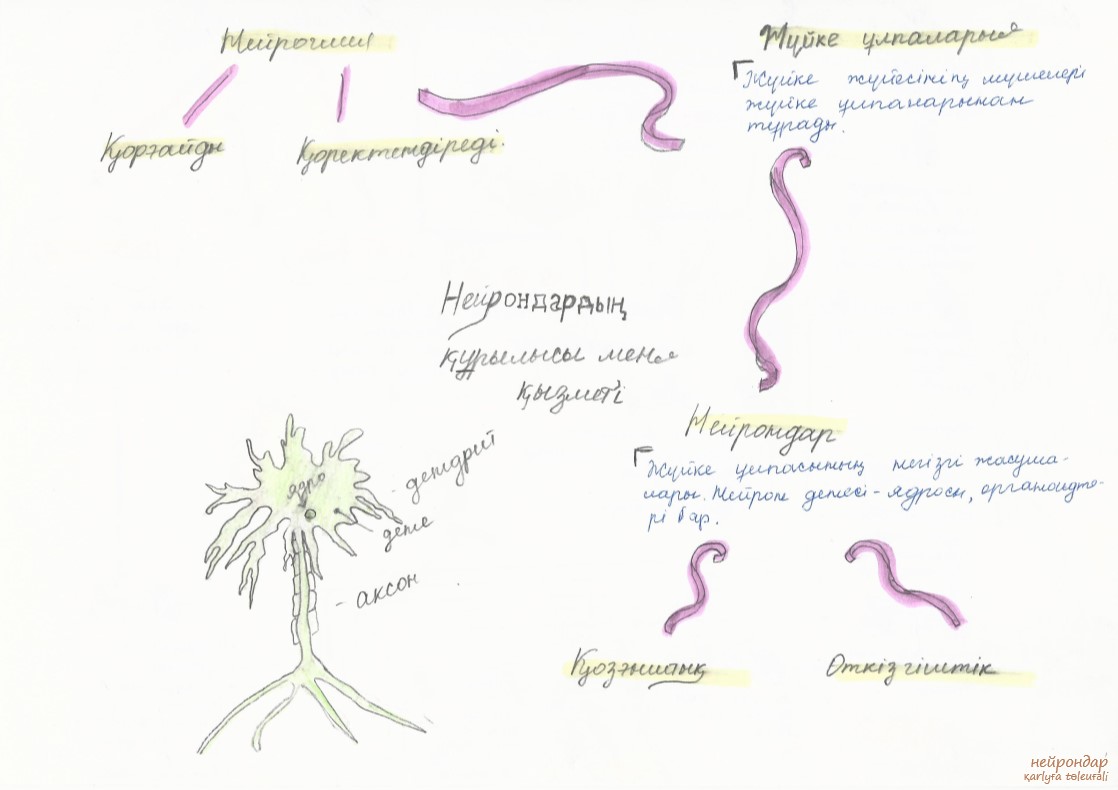 Нейроглия
Қорғайды
Қоректендіреді.
Жүйке ұлпалары
Жүйке жүйесінің мүшелері
жүйке ұлпаларынан
тұрады.
Нейрондардың
құрылысы мен
қызметі
Нейрондар
Жүйке ұлпасының негізгі жасуша-
лары. Нейрон денесі - ядросы, органоидте-
рі бар.
Қозғыштық
Өткізгіштік
ядро
- дендрит
дене
- аксон
нейрондар
qarlyģa tóleuģali